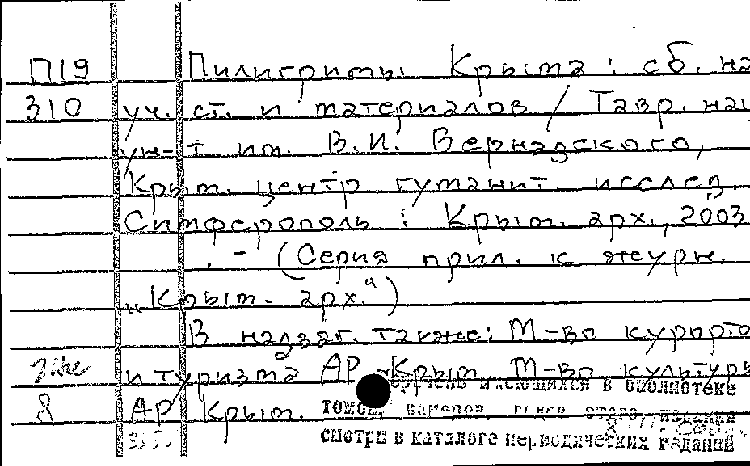 П19 Пилигримы Крыма : сб. на
310 уч. ст. и материалов / Тавр. нац
ун-т им. В.И. Вернадского,
Крым. центр гуманит исслед
Симферополь : Крым. арх., 2003
. - (Серия прил. к журн.
„Крым. арх.")
В надзаг. также: М-во курорто
и туризма АР Крым М-во культуры
8 АР Крым.
имеющихся в библиотеке
томов, номеров,
смотри в каталоге периодических изданий